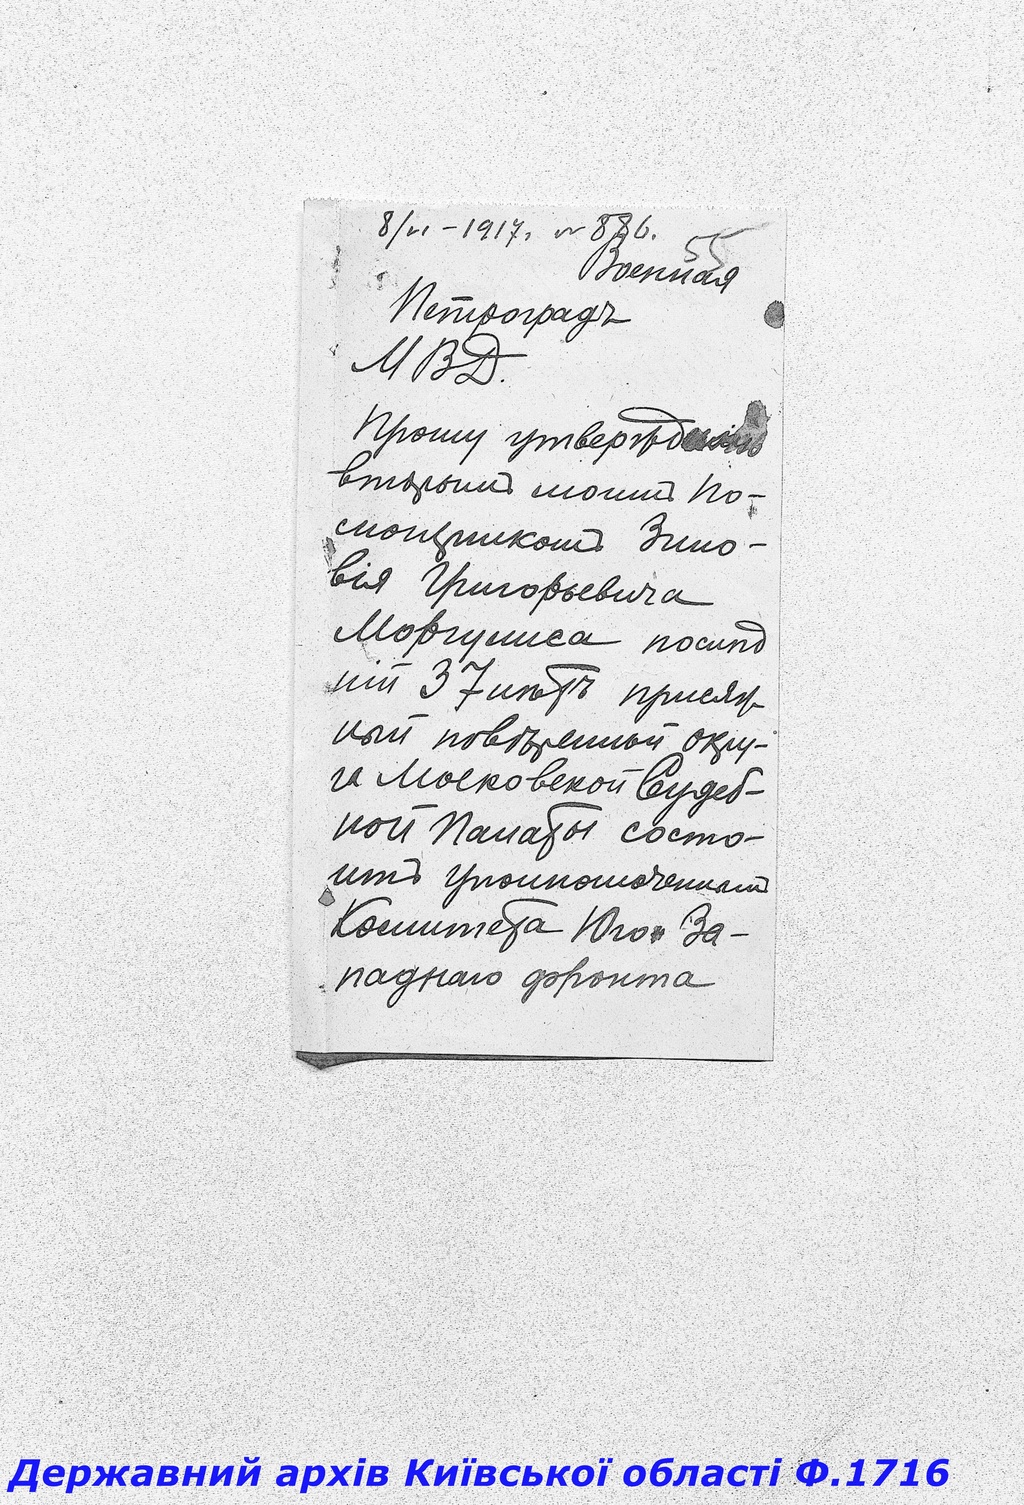 8/VI – 1917. № 886.
55
Военная
Петроградъ
МВД.
Прошу утвержденія
вторымъ моимъ По-
мощникомъ Зино-
вія Григорьевича
Моргулиса послед
ній 37 лѣтъ присяж
ный повѣренный окру-
га Московской Судеб-
ной Палаты состо-
итъ уполномоченнымъ
Комитета Юго За-
паднаго фронта
Державний архів Київської області Ф.1716